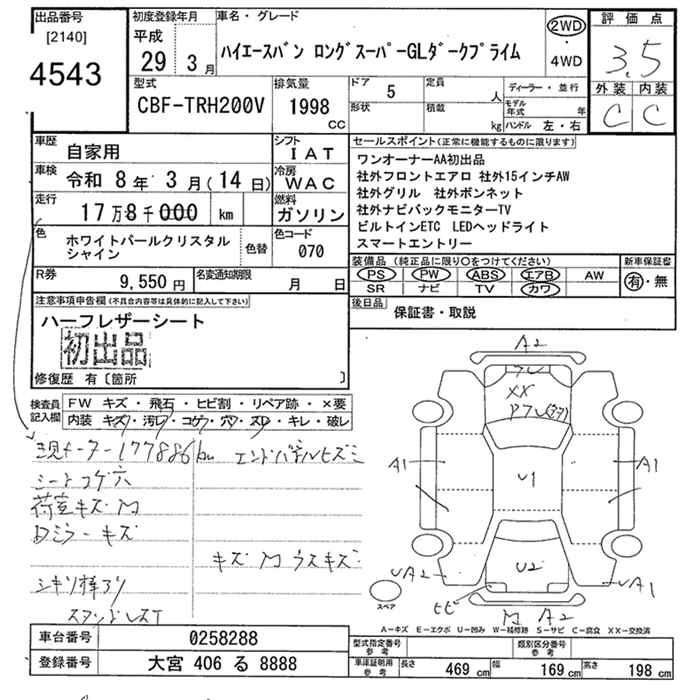 出品番号 初度登録年月 車名・グレード 評価点
[2140] 平成
4543 29 3月 ハイエースバン ロングスーパーGLダークプライム 2WD・4WD 3.5
型式 排気量 ドア 5 定員 人 ディーラー・並行 外装 内装
CBF-TRH200V 1998 CC 形状 積載 kg モデル年式 年 ハンドル 左・右 C C
車歴 自家用 シフト IAT セールスポイント(正常に機能するものに限ります)
車検 令和 8年 3月(14日) 冷房 WAC
走行 17万8千000 km 燃料 ガソリン
色 ホワイトパールクリスタルシャイン 色替 色コード 070
ワンオーナーAA初出品
社外フロントエアロ 社外15インチAW
社外グリル 社外ボンネット
社外ナビバックモニターTV
ビルトインETC LEDヘッドライト
スマートエントリー
R券 9,550円 名変通知期限 月 日
装備品(純正品に限り○をつけてください) 新車保証書
PS PW ABS エアB AW 有・無
SR ナビ TV カワ
注意事項申告欄(不具合内容等は具体的に記入して下さい)
ハーフレザーシート
初出品
修復歴 有〔箇所 〕
後日品 保証書・取説
検査員記入欄 FW キズ・飛石・ヒビ割・リペア跡・×要
内装 キズ・汚レ・コゲ・穴・スレ・キレ・破レ
現メーター177886km エンドパネルヒズミ
シートコゲ穴
荷室キズM
Dミラーキズ
キズM ウスキズ
シキリ棒アリ
A2
XX
A1 U1 A1
U2
UA2 UA1
ヒビ
スペア
M A2
A-キズ E-エクボ U-凹み W-補修跡 S-サビ C-腐食 XX-交換済
車台番号 0258288
登録番号 大宮 406 る 8888
型式指定番号 参考 類別区分番号 参考
車庫証明用 参考 長さ 469 cm 幅 169 cm 高さ 198 cm